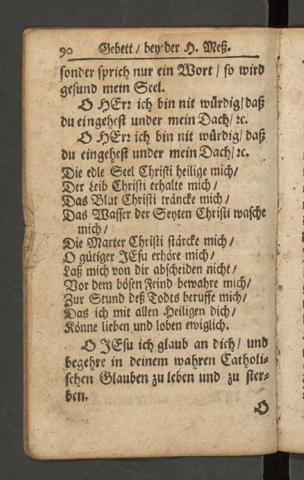 90 Gebett / bey der H. Meß.
sonder sprich nur ein Wort / so wird
gesund mein Seel.
O HErr ich bin nit würdig / daß
du eingehest under mein Dach / ꝛc.
O HErr ich bin nit würdig / daß
du eingehest under mein Dach / ꝛc.
Die edle Seel Christi heilige mich /
Der Leib Christi erhalte mich /
Das Blut Christi träncke mich /
Das Wasser der Seyten Christi wasche
mich /
Die Marter Christi stärcke mich /
O gütiger JEsu erhöre mich /
Laß mich von dir abscheiden nicht /
Vor dem bösen Feind bewahre mich /
Zur Stund deß Todts beruffe mich /
Das ich mit allen Heiligen dich /
Könne lieben und loben ewiglich.
O JEsu ich glaub an dich / und
begehre in deinem wahren Catholi-
schen Glauben zu leben und zu ster-
ben.
O